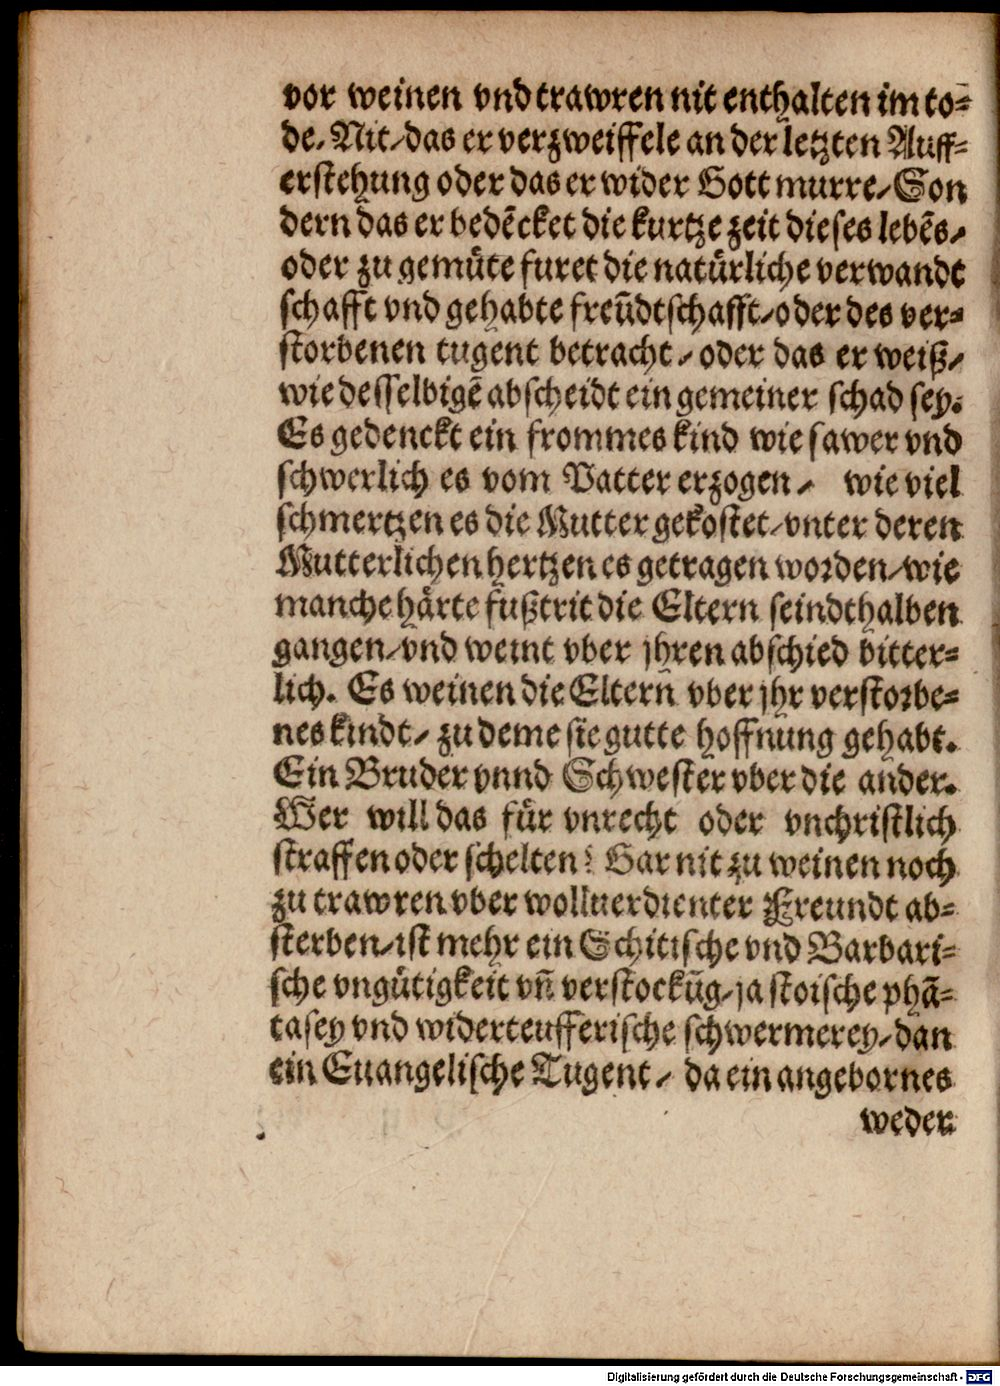 vor weinen vnd trawren nit enthalten im to-
de. Nit/ das er verzweiffele an der letzten Auff-
erstehung oder das er wider Gott murre/ Son
dern das er bedēcket die kurtze zeit dieses lebēs/
oder zu gemüte furet die natürliche verwandt
schafft vnd gehabte freūdtschafft/ oder des ver-
storbenen tugent betracht/ oder das er weiß/
wie desselbigē abscheidt ein gemeiner schad sey.
Es gedenckt ein frommes kind wie sawer vnd
schwerlich es vom Vatter erzogen/ wie viel
schmertzen es die Mutter gekostet/ vnter deren
Mutterlichen hertzen es getragen worden/ wie
manche härte fußtrit die Eltern seindthalben
gangen/ vnd weint vber jhren abschied bitter-
lich. Es weinen die Eltern vber jhr verstorbe-
nes kindt/ zu deme sie gutte hoffnung gehabt.
Ein Bruder vnnd Schwester vber die ander.
Wer will das für vnrecht oder vnchristlich
straffen oder schelten? Gar nit zu weinen noch
zu trawren vber wolluerdienter Freundt ab-
sterben/ ist mehr ein Schitische vnd Barbari-
sche vngütigkeit vn̄ verstockūg/ ja stoische phā-
tasey vnd widerteufferische schwermerey/ dan
ein Euangelische Tugent/ da ein angebornes
weder
Digitalisierung gefördert durch die Deutsche Forschungsgemeinschaft - DFG